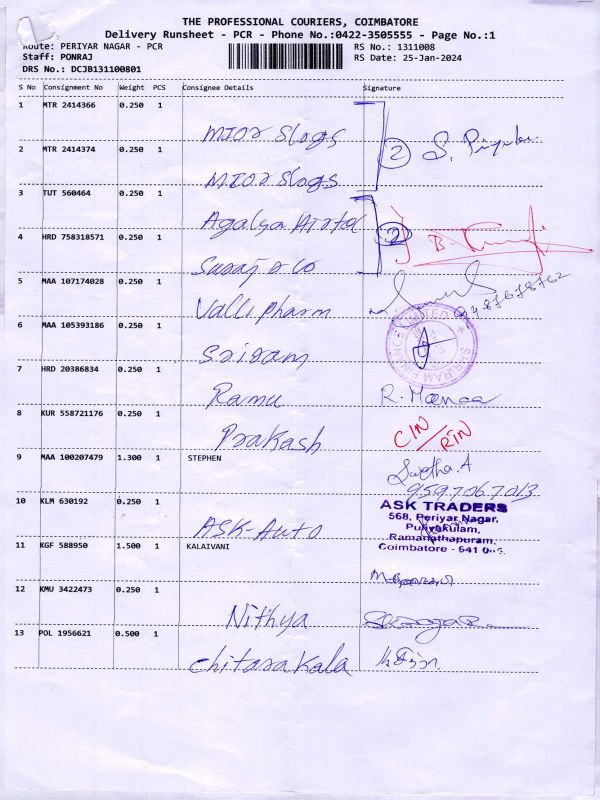 THE PROFESSIONAL COURIERS, COIMBATORE
Delivery Runsheet - PCR - Phone No.:0422-3505555 - Page No.:1
Route: PERIYAR NAGAR - PCR
RS No.: 1311008
Staff: PONRAJ
RS Date: 25-Jan-2024
DRS No.: DCJB131100801
S No Consignment No Weight PCS Consignee Details Signature
1 MTR 2414366 0.250 1
2 MTR 2414374 0.250 1
2
3 TUT 560464 0.250 1
Agalya Airtel
4 HRD 758318571 0.250 1
2
Suraj & co
5 MAA 107174028 0.250 1
Valli pharm
6 MAA 105393186 0.250 1
Sriram
7 HRD 20386834 0.250 1
Ramu R. Meenaa
8 KUR 558721176 0.250 1
Prakash
9 MAA 100207479 1.300 1 STEPHEN
Swetha.A
9597067013
10 KLM 630192 0.250 1
ASK Auto
ASK TRADERS
568, Periyar Nagar,
Puliyakulam,
Ramanathapuram,
Coimbatore - 641
11 KGF 588950 1.500 1 KALAIVANI
12 KMU 3422473 0.250 1
Nithya
13 POL 1956621 0.500 1
Chitara Kala